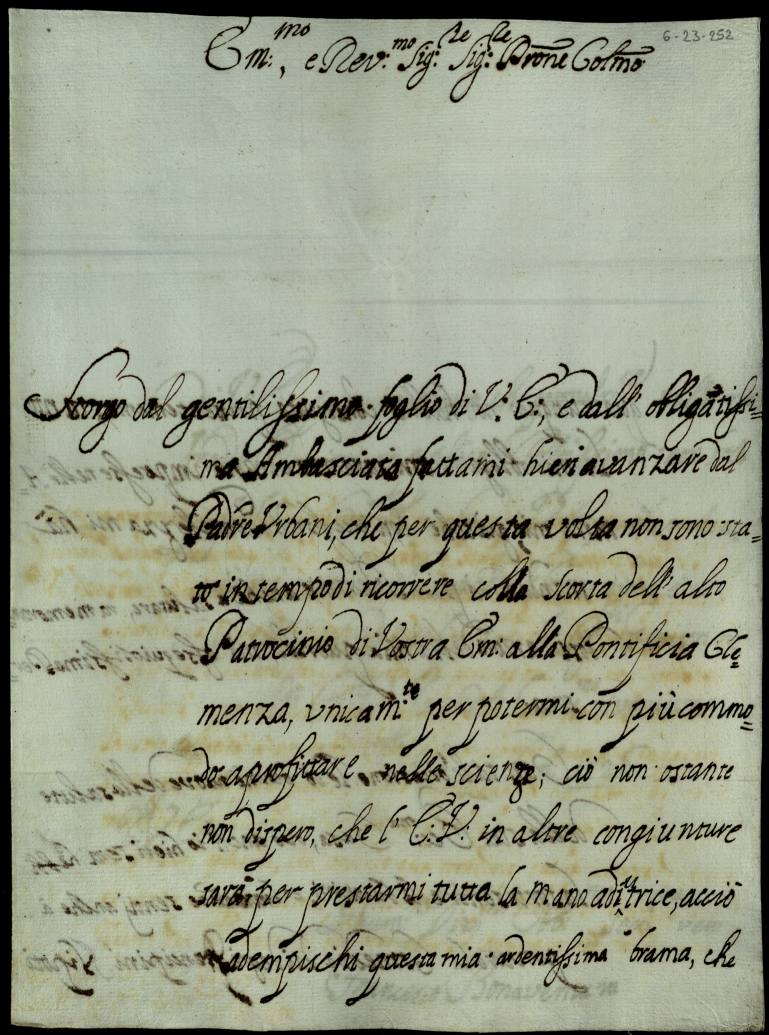 6-23-252
Em:mo, e Rev:mo Sig:re Sig:re Prone Colmo
Scorgo dal gentilissimo foglio di V: E:, e dall' obligatissi=
ma Ambasciata fattami hieri avanzare dal
Padre Urbani, che per questa volta non sono sta=
to in tempo di ricorrere colla scorta dell' alto
Patrocinio di Vostra Em: alla Pontificia Cle=
menza, unicam:te per potermi con più commo=
do aprofittare nelle scienze; ciò non ostante
non dispero, che l' E: V: in altre congiunture
sarà per prestarmi tutta la mano adiutrice, acciò
adempischi questa mia ardentissima brama, che